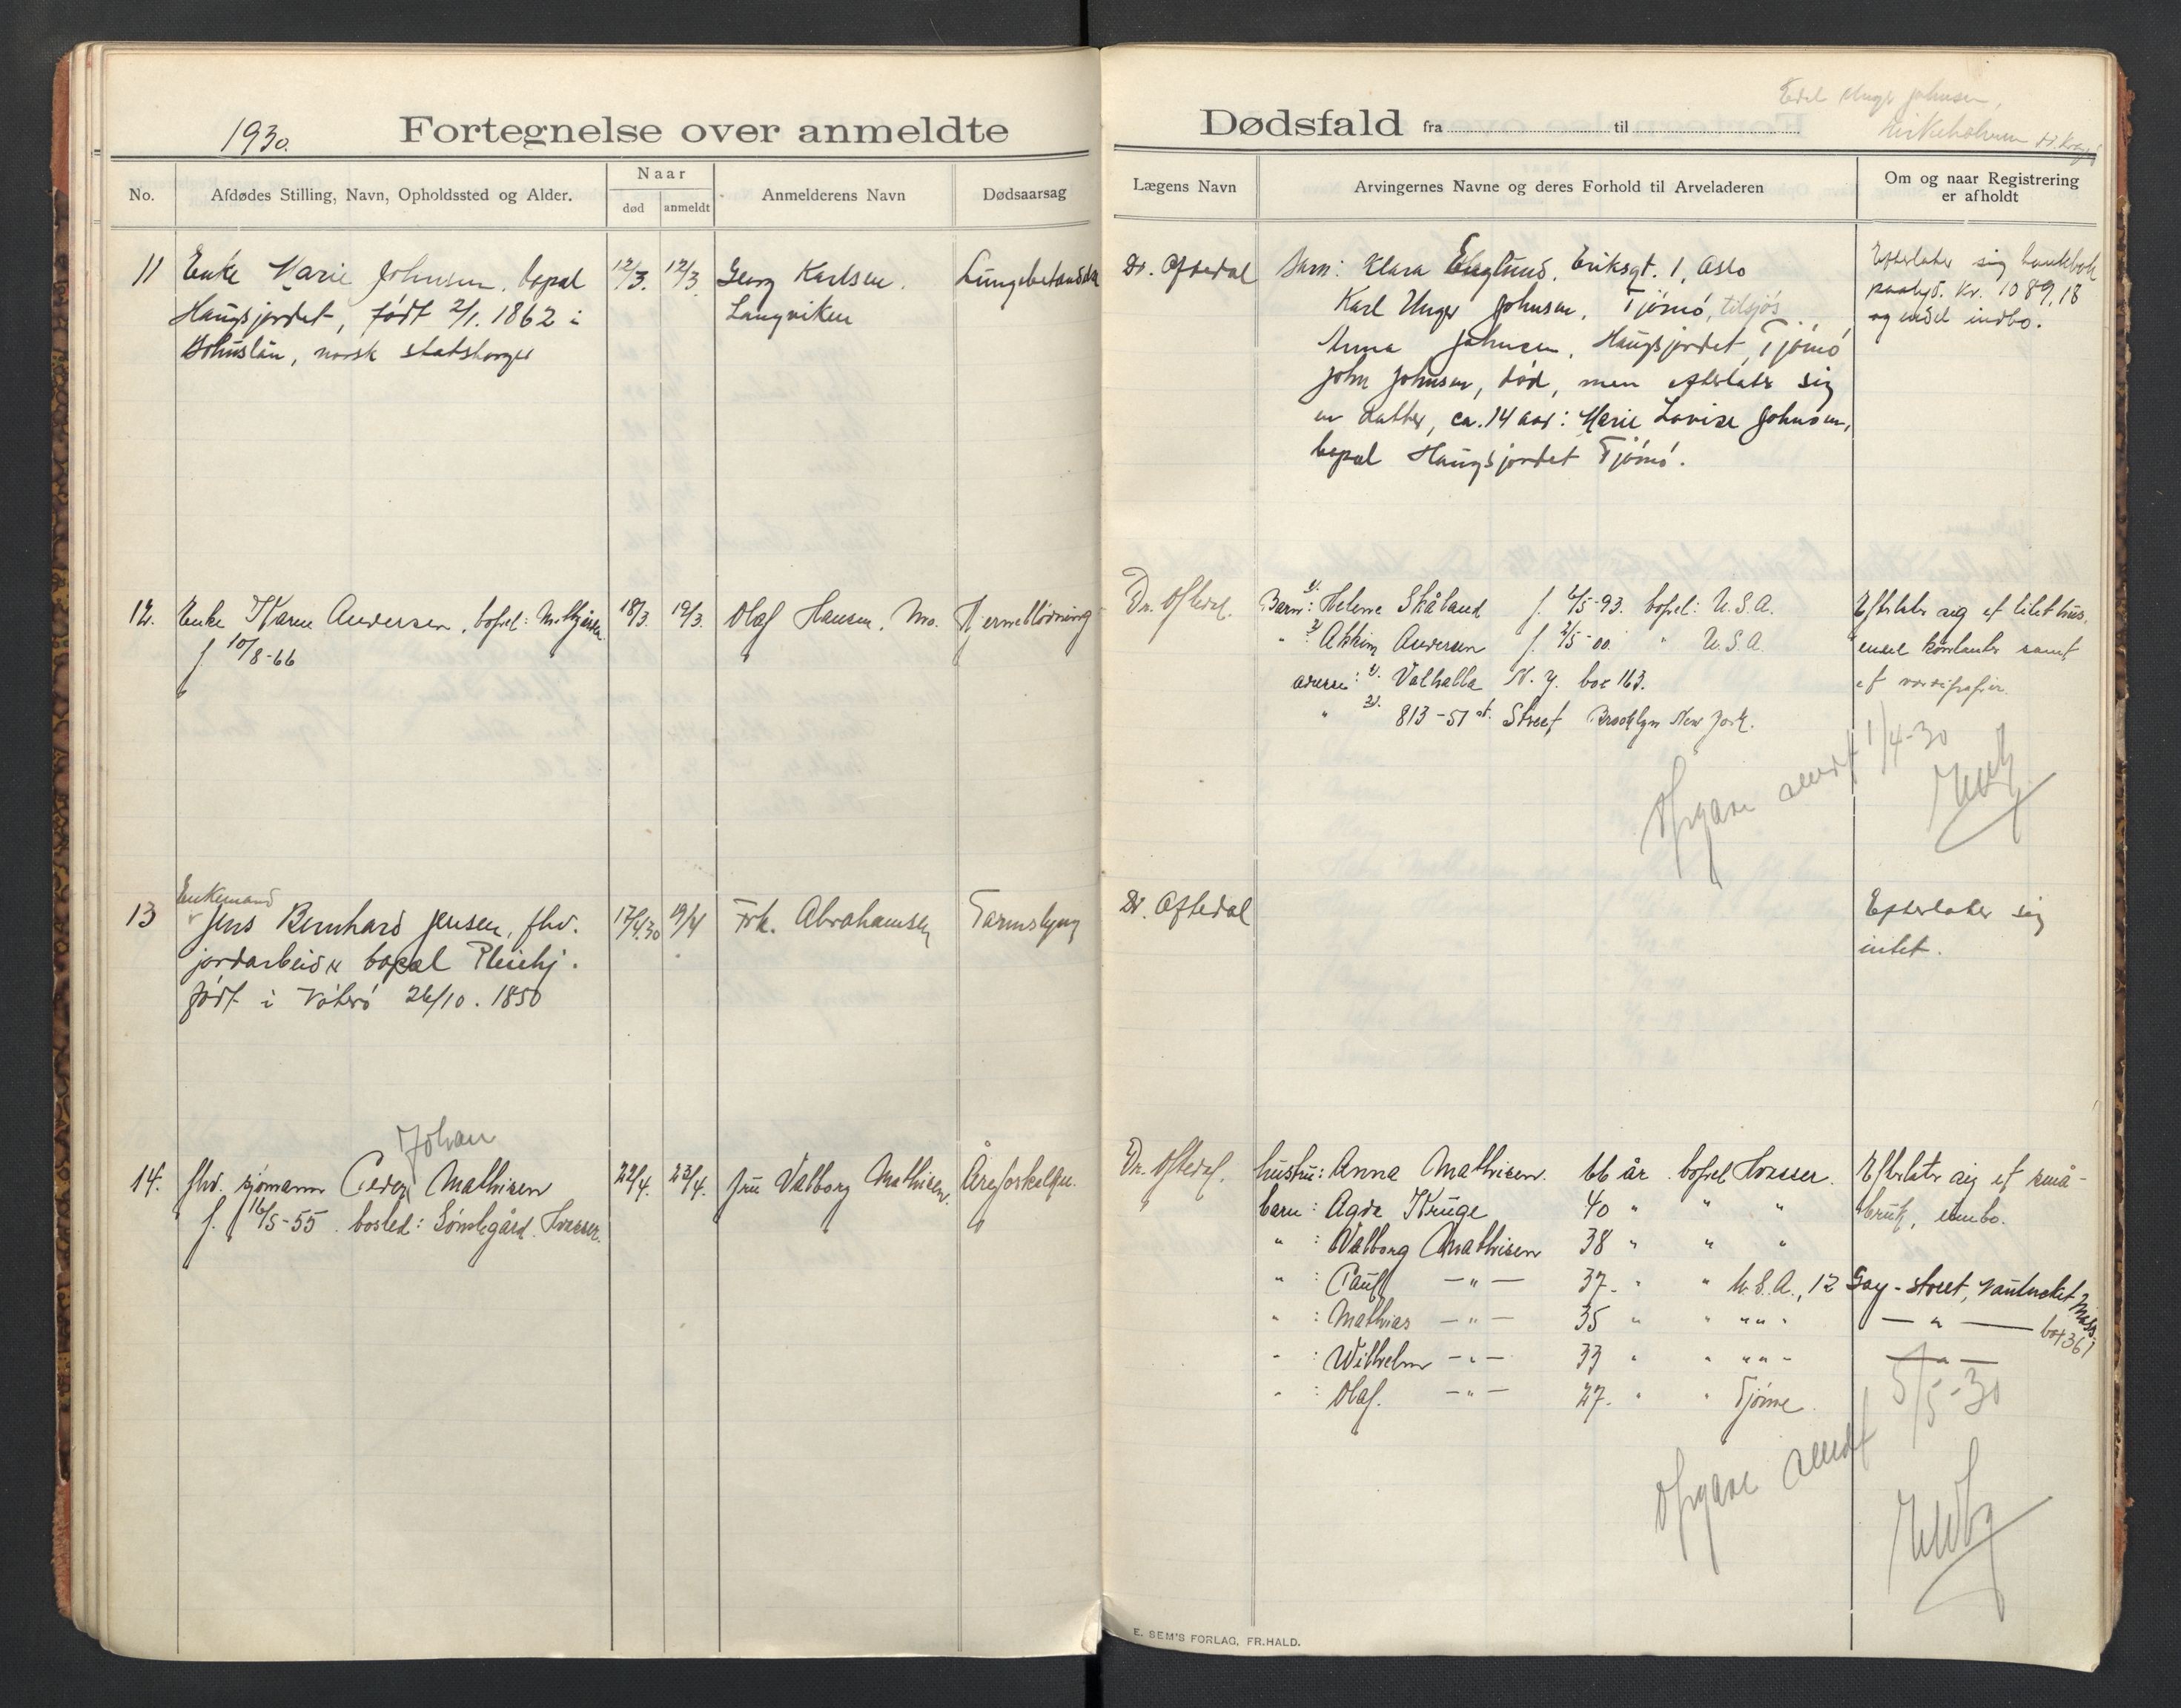 1930.
Fortegnelse over anmeldte
Dødsfald fra til
Edel Unger Johnsen,
Kirkeholmen
No.
Afdødes Stilling, Navn, Opholdssted og Alder.
Naar
død
anmeldt
Anmelderens Navn
Dødsaarsag
Lægens Navn
Arvingernes Navne og deres Forhold til Arveladeren
Om og naar Registrering
er afholdt
11
Enke Marie Johnsen, bopæl
Haugsjordet, født 2/1. 1862 i
Bohuslän, norsk statsborger
12/3.
12/3
Georg Karlsen.
Langviken
Lungebetændelse
Dr. Oftedal
Barn: Klara Englund, Eriksgt. 1, Oslo
Karl Unger Johnsen, Tjömö, tilsjös
Anna Johnsen, Haugsjordet, Tjömö
John Johnsen, död, men efterlater sig
en datter, ca. 14 aar: Marie Lovise Johnsen,
bopæl Haugsjordet Tjömö.
Efterlater sig bankbok
paalyd. kr. 1089,18
og endel indbo.
12.
Enke Karen Andersen, bopel:
f 10/8-66
18/3.
19/3.
Olaf Hansen, Mo.
Hjerneblödning
Dr. Oftedal.
Barn: 1/ Helene Skåland f. 4/5-93. bopel: U.S.A.
" 2/ Andersen f. 2/5-00. " U.S.A.
adresse: 1). Valhalla N.Y. box 163.
" 2). 813-51 st. Street, Brooklyn New York.
Efterlater sig et litet hus,
endel kontanter samt
et verdipapir.
Opgave sendt 1/4-30
13
Enkemand
Jens Bernhard Jensen, fhv.
jordarbeider bopæl
født i 26/10. 1850
17/4.30
19/4
Frk. Abrahamsen
Tarmslyng
Dr. Oftedal
Efterlater sig
intet.
Johan
14.
fhv. sjömann Peder Mathisen
f. 16/5-55. bosted: Hvasser.
22/4.
23/4.
fru Valborg Mathisen.
Åreforkalkn.
Dr. Oftedal.
hustru: Anna Mathisen. 66 år. bopel Hvasser.
barn: Agda Kruge 40 " " "
" : Valborg Mathisen 38 " " "
" : Paul — " — 37. " " U.S.A., 12 Gay-street, Nantucket Mass.
" : Mathias — " — 35 " " " " " — " — box 361
" : Wilhelm — " — 33 " " " " " — " —
" : Olaf. — " — 27. " " Tjöme.
Efterlater sig et små-
bruk, innbo.
Opgave sendt 5/5-30
E. SEM'S FORLAG, FR.HALD.